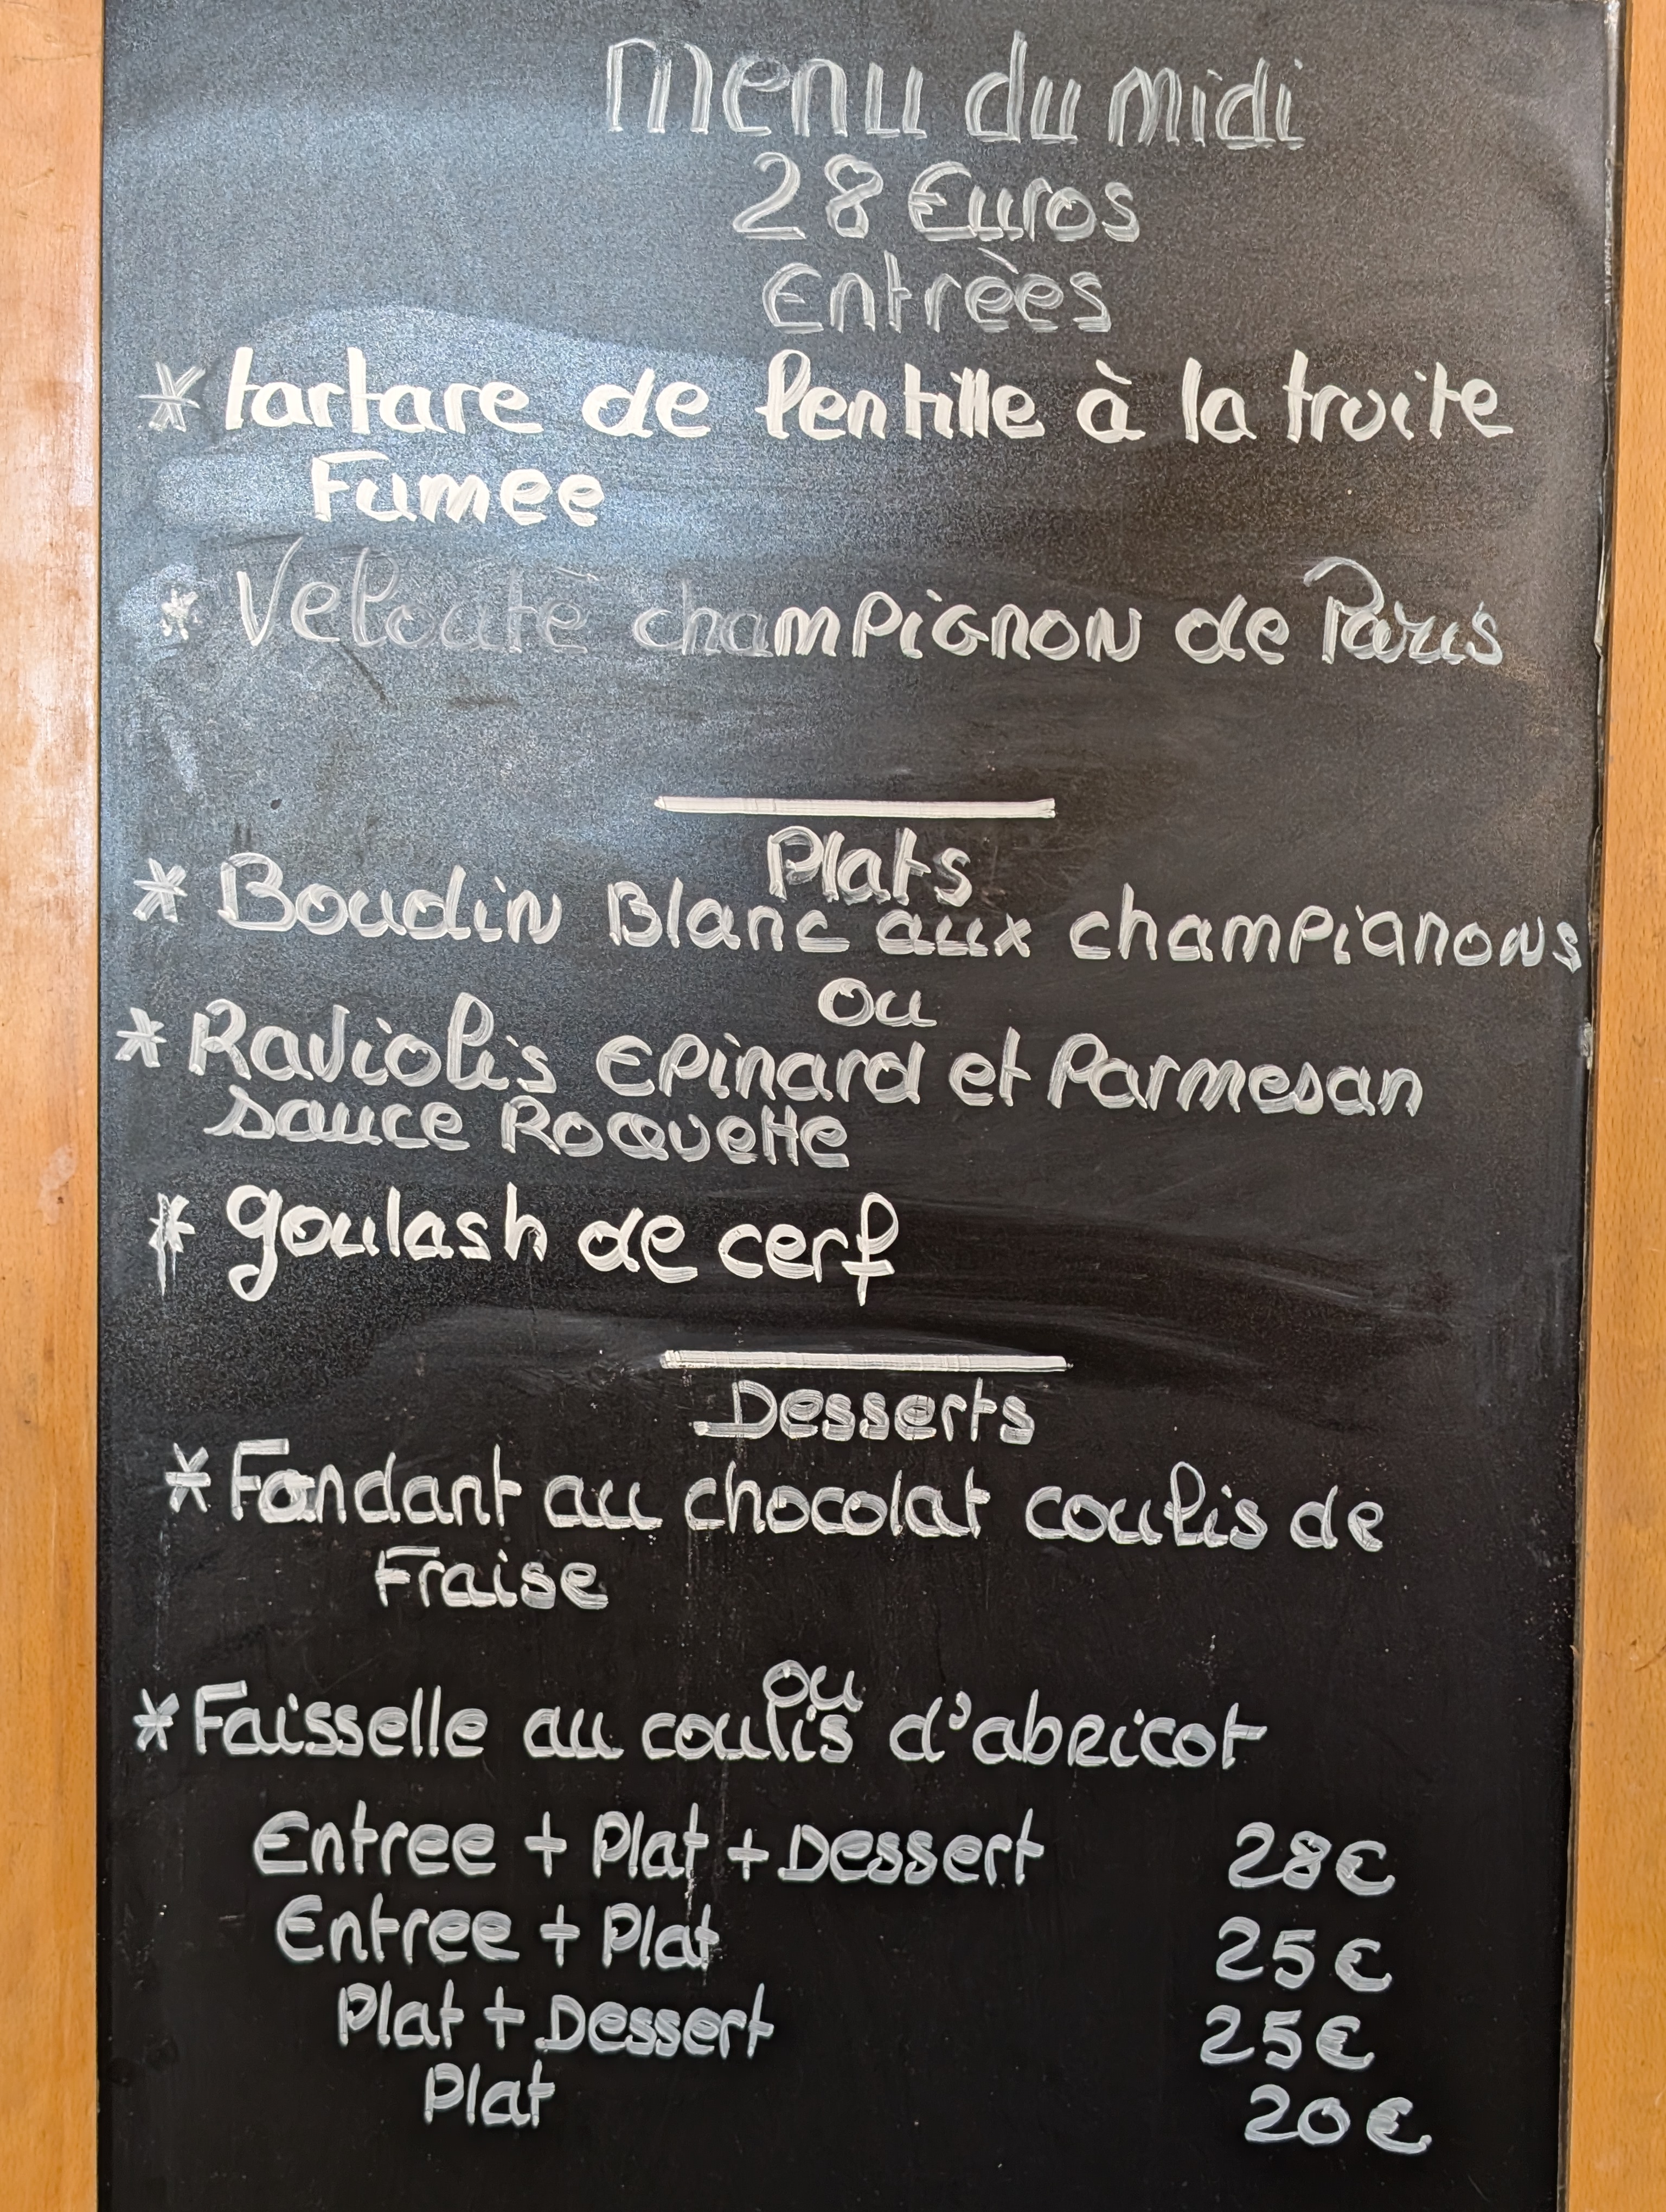 Menu du midi
28 Euros
Entrèes
* tartare de lentille à la truite
Fumee
* Velouté champignon de Paris
Plats
* Boudin Blanc aux champignons
ou
* Raviolis Epinard et Parmesan
sauce Roquette
* goulash de cerf
Desserts
* Fondant au chocolat coulis de
Fraise
ou
* Faisselle au coulis d'abricot
Entree + Plat + Dessert 28€
Entree + Plat 25€
Plat + Dessert 25€
Plat 20€